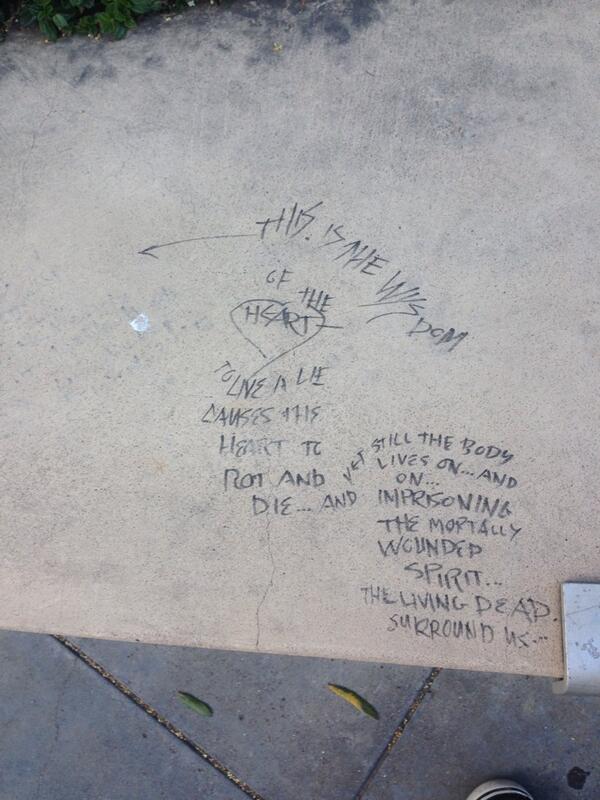 THIS. IS THE WISDOM
OF THE
HEART
TO LIVE A LIE
CAUSES THE
HEART TO
ROT AND
DIE... AND
YET STILL THE BODY
LIVES ON... AND
ON...
IMPRISONING
THE MORTALLY
WOUNDED
SPIRIT...
THE LIVING DEAD.
SURROUND US...